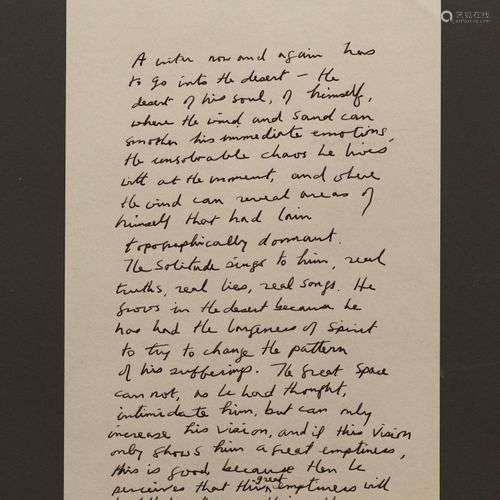 A writer now and again has
to go into the desert – the
desert of his soul, of himself,
where the wind and sand can
smother his immediate emotions,
the unsolvable chaos he lives
with at the moment, and where
the wind can reveal areas of
himself that had lain
topographically dormant.
The solitude sings to him, real
truths, real lies, real songs. He
grows in the desert because he
has had the largeness of spirit
to try to change the pattern
of his sufferings. The great space
can not, as he had thought,
intimidate him, but can only
increase his vision, and if this vision
only shows him a great emptiness,
this is good because then he
great
perceives that this emptiness will